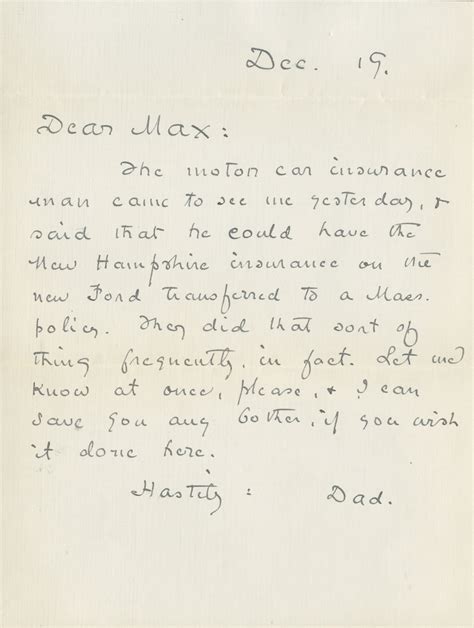 Dec. 19.
Dear Max:
The motor car insurance
man came to see me yesterday, &
said that he could have the
New Hampshire insurance on the
new Ford transferred to a Mass.
policy. They did that sort of
thing frequently, in fact. Let me
know at once, please, & I can
save you any bother, if you wish
it done here.
Hastily: Dad.